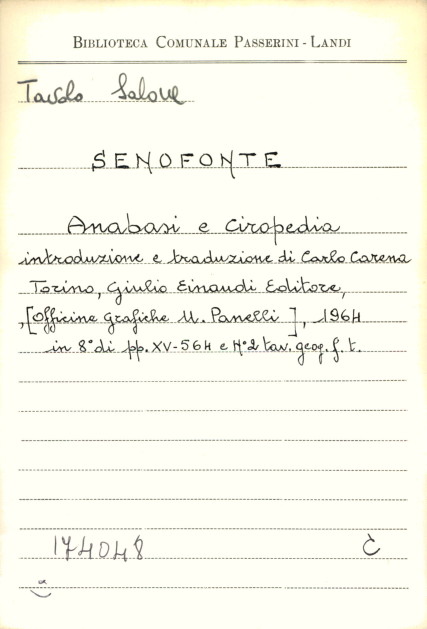 BIBLIOTECA COMUNALE PASSERINI - LANDI
Tavolo Salone
SENOFONTE
Anabasi e Ciropedia
introduzione e traduzione di Carlo Carena
Torino, Giulio Einaudi Editore,
,[Officine Grafiche U. Panelli ], 1964
in 8° di pp. XV-564 e N°2 tav. geog. f. t.
174048 C